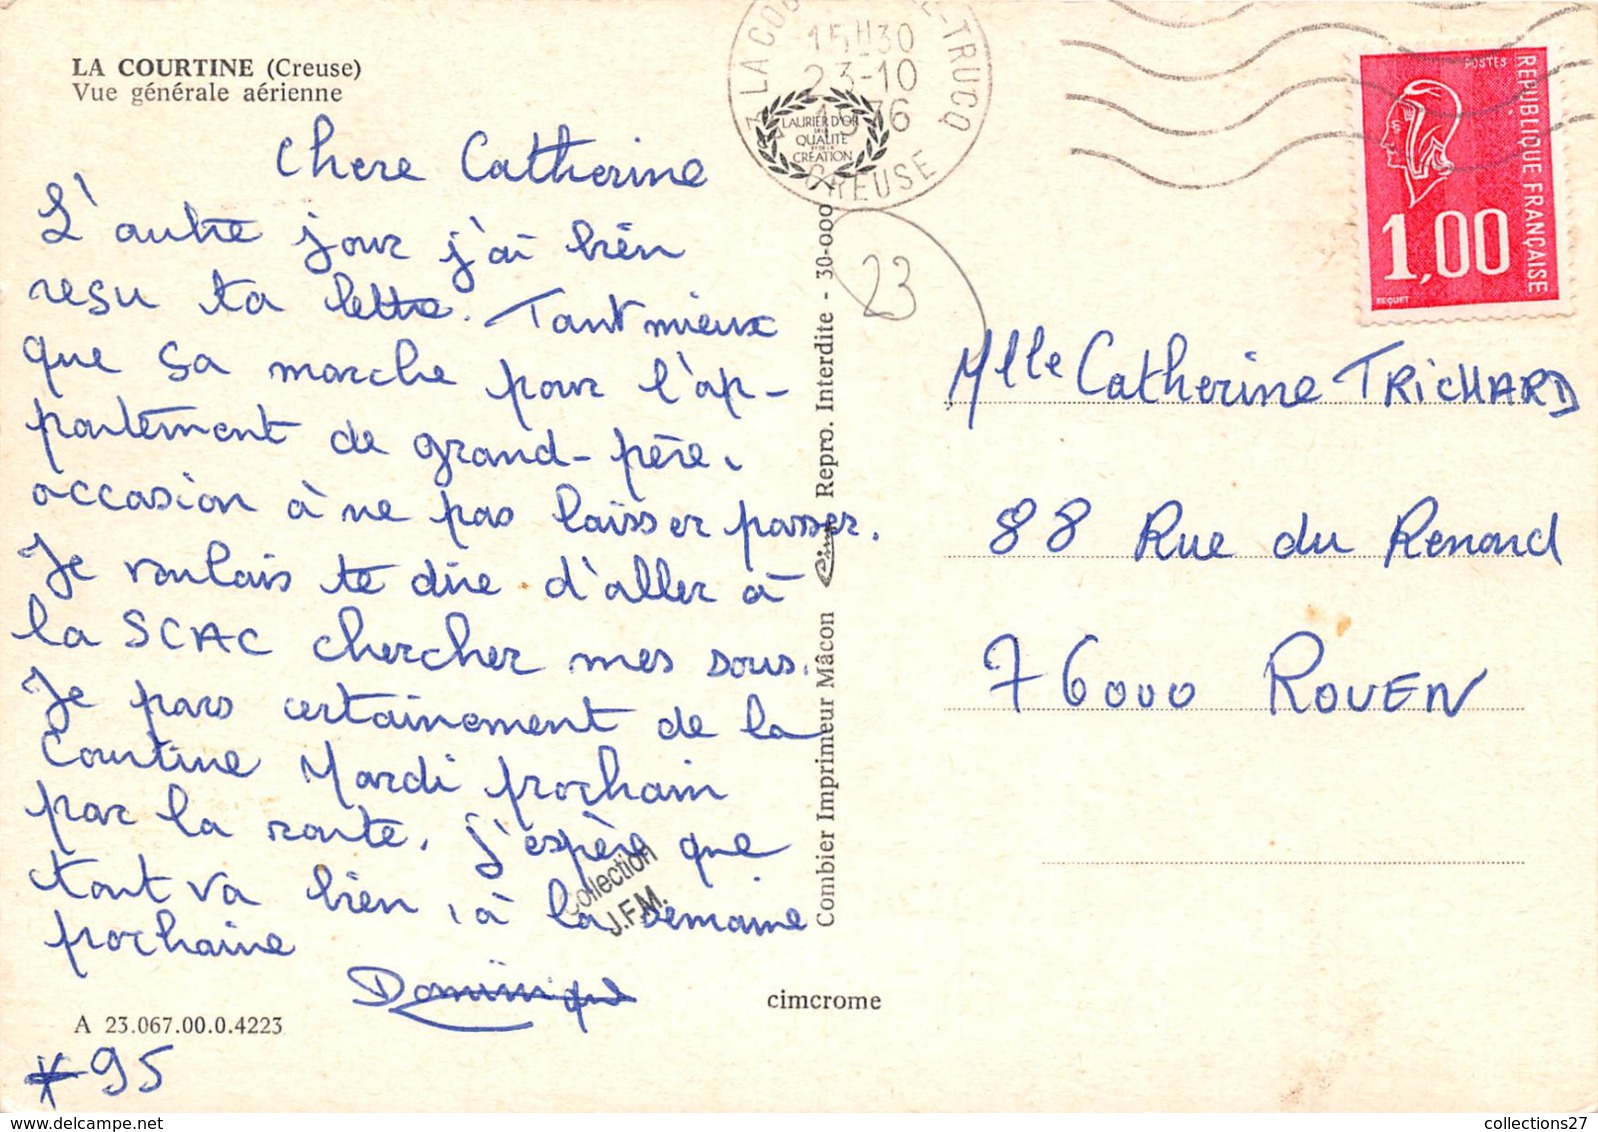 LA COURTINE (Creuse)
Vue générale aérienne
Chere Catherine
L'autre jour j'ai bien
resu ta lettre. Tant mieux
que sa marche pour l'ap-
partement de grand-père.
occasion à ne pas laisser passer.
Je voulais te dire d'aller à
la SCAC chercher mes sous.
Je pars certainement de la
Courtine Mardi prochain
par la route. J'espère que
tout va bien, à la semaine
prochaine
Dominique
Collection
J.F.M.
A 23.067.00.0.4223
*95
cimcrome
Combier Imprimeur Mâcon Cim Repro. Interdite - 30-000
23 LA TRUCQ
15H30
23-10
1976
CREUSE
LAURIER D'OR
DE LA
QUALITE
ET DE LA
CRÉATION
23
POSTES
REPUBLIQUE FRANÇAISE
1,00
BEQUET
Mlle Catherine TRICHARD
88 Rue du Renard
76000 ROUEN
collections27